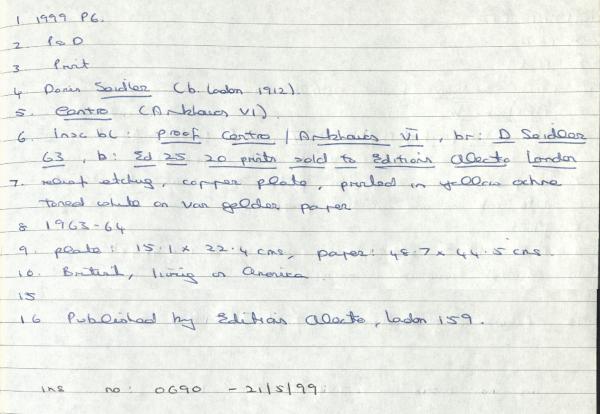 1 1999 P6.
2 P&D
3 Print
4 Doris Seidler (b. London 1912).
5. Centro (Arkhaios VI).
6. Insc bl: proof Centro / Arkhaios VI, br: D Seidler
63, b: Ed 25 20 prints sold to Editions Alecto London
7. relief etching, copper plate, printed in yellow ochre
toned white on Van gelder paper
8 1963-64
9. plate: 15.1 x 22.4 cms, paper: 48.7 x 44.5 cms.
10. British, living in America
15
16 Published by Editions Alecto, London 159.
ins no: 0690 - 21/5/99